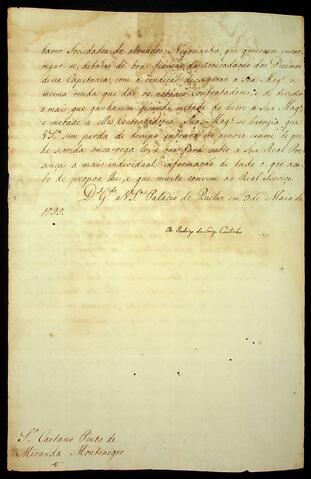 haver Sociedades de abonados Negociantes, que quizessem encar-
regar-se, debaixo de boa fiança, da arrecadação dos Dizimos
dessa Capitania, com a condição de segurar a Sua Mag.e a
mesma renda que dão os actuaes Contratadores, e de dividir
o mais, que ganhassem ficando metade do lucro a Sua Mag.e
e metade a elles Contratadores. Sua Mag.e se lisongea que
V. S.a sem perda de tempo entrará no exame
de Sorvida encarrega-lo, e que fará subir a Sua Real Pre-
sença a mais individual informação de tudo o que aca-
bo de propor-lhe, e que muito convem ao Real Serviço.
D.s G.de a V. S.a Palacio de Queluz em 9 de Maio de
1799.
D. Rodrigo de Souza Coutinho
S.r Caetano Pinto de
Miranda Montenegro